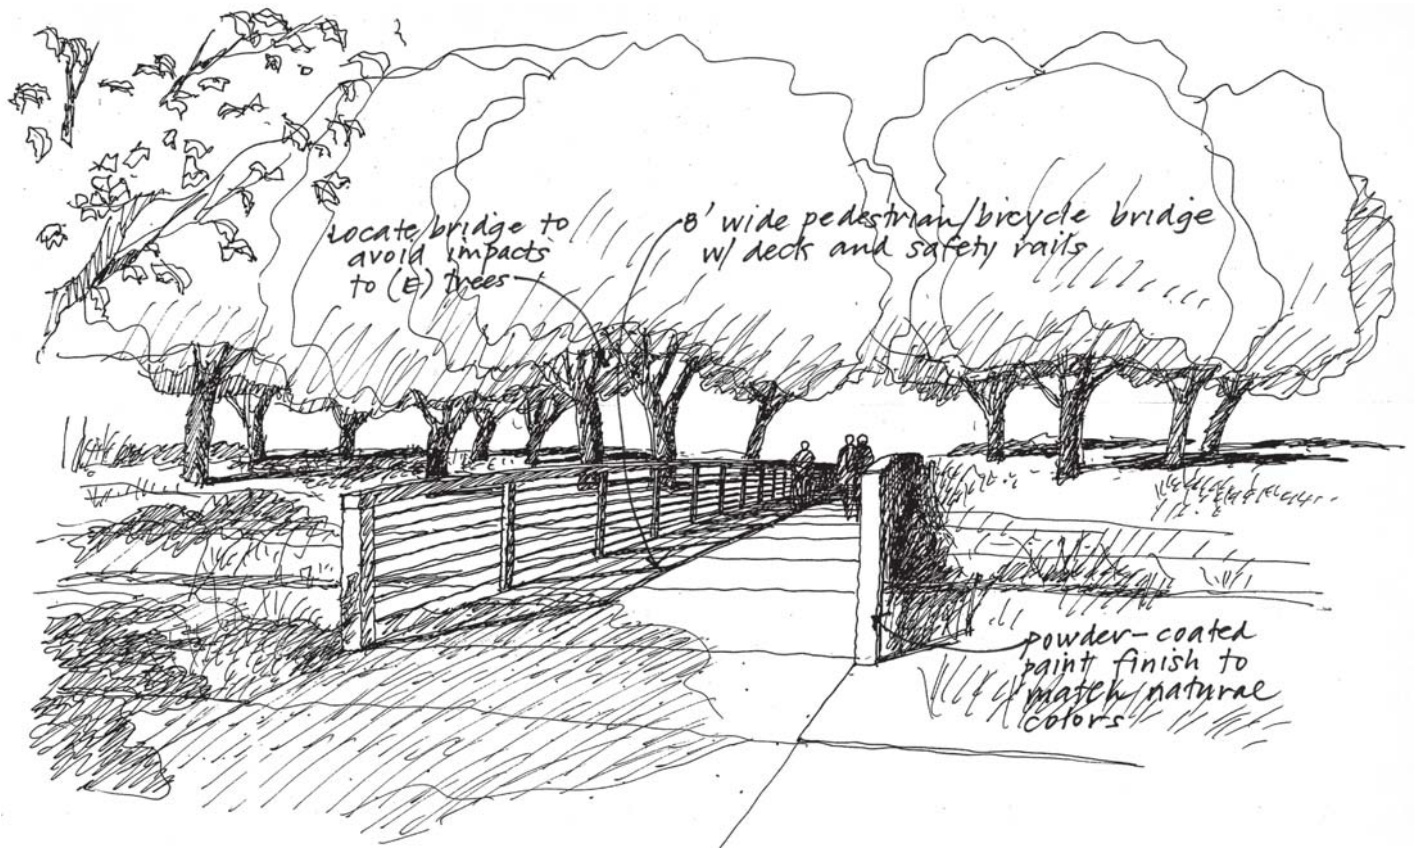 Locate bridge to
avoid impacts
to (E) trees
8' wide pedestrian/bicycle bridge
w/ deck and safety rails
powder-coated
paint finish to
match natural
colors